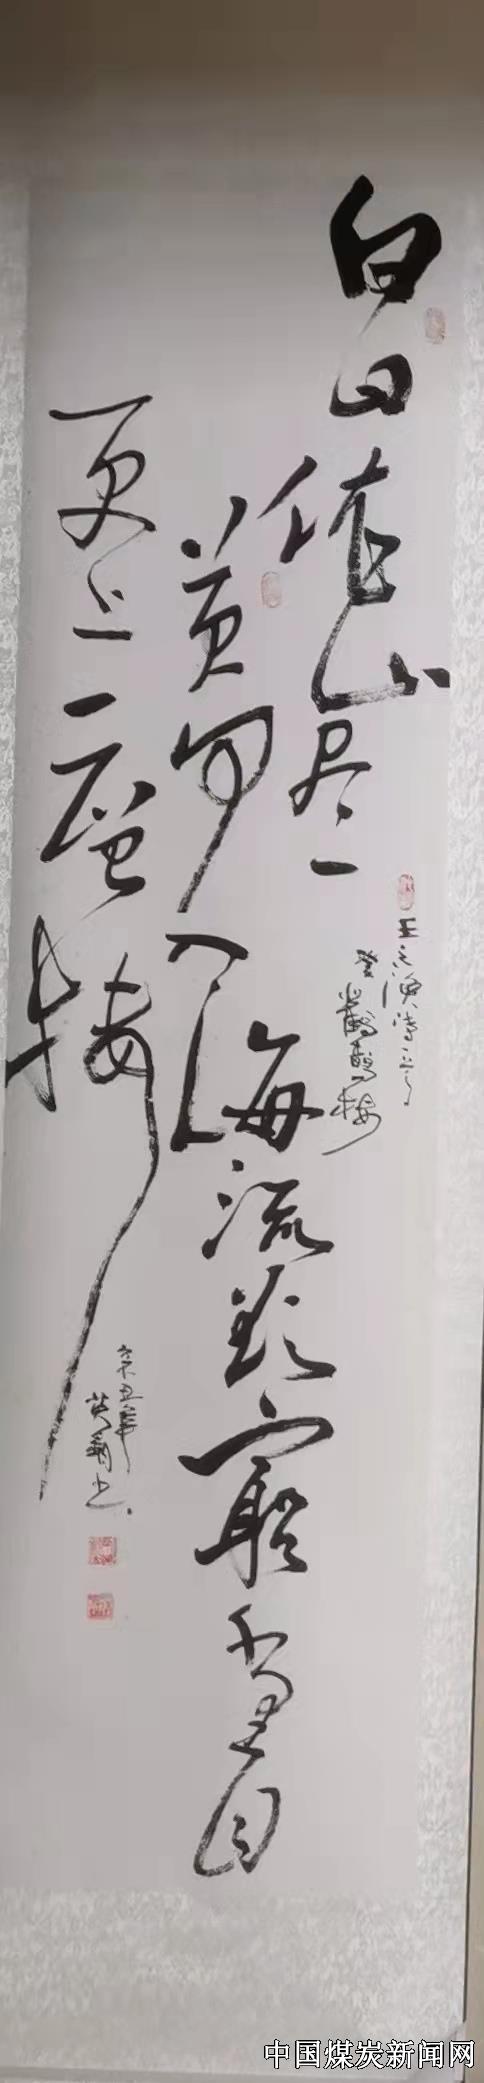 白日依山尽
王之涣诗
登鸛鵲楼
黄河入海流欲窮千里目
更上一层楼
辛丑年
书
中国煤炭新闻网